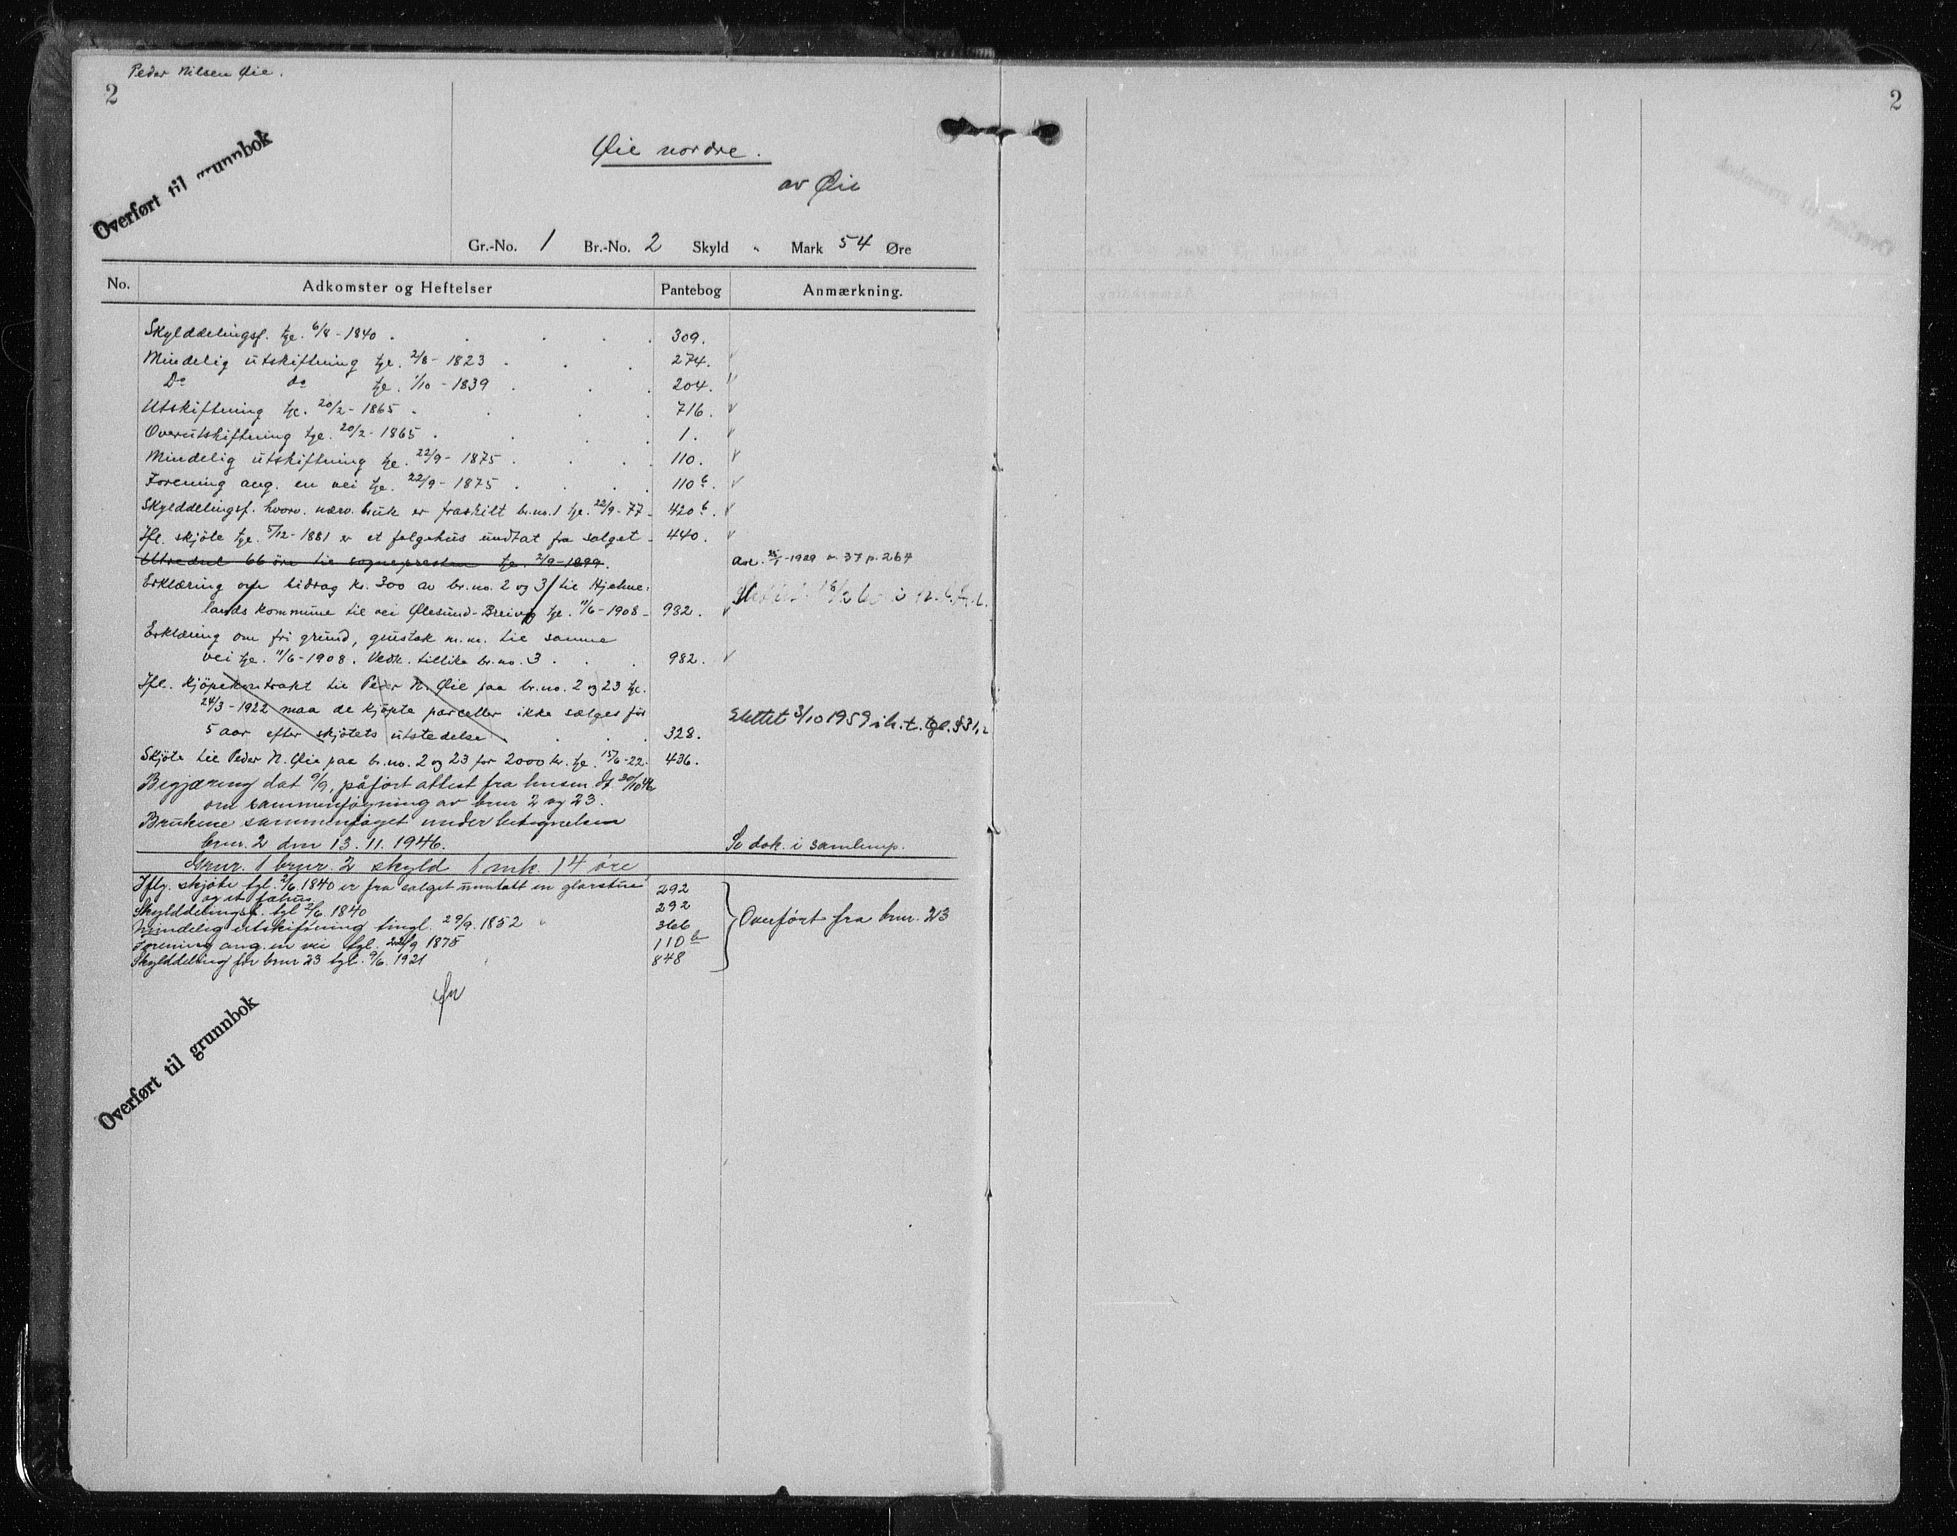 Peder Nilsen Øie.
2
2
Overført til grunnbok
Øie nordre.
av Øie
Gr.-No. 1 Br.-No. 2 Skyld " Mark 54 Øre
No. Adkomster og Heftelser Pantebog Anmærkning.
Skylddelingsf. tge. 6/8 - 1840 . 309.
Mindelig utskiftning tge. 2/8 - 1823 . 274. v
Do do tge. 1/10 - 1839 . 204. v
Utskiftning tge. 20/2 - 1865 . 716. v
Overutskiftning tge. 20/2 - 1865 . 1. v
Mindelig utskiftning tge. 22/9 - 1875 . 110. v
Forening ang. en vei tge. 22/9 - 1875 . 110 b. v
Skylddelingsf. hvorv. nærv. bruk er fraskilt br.no. 1 tge. 22/9 - 77 - 420 b. v
Ifl. skjøte tge. 5/12 - 1881 er et følgehus undtat fra salget - 440. v
Utredsel 66 øre til sognepresten tge. 2/9 - 1899. - 1929 v. 37 p. 267
Erklæring om bidrag kr. 300 av br.no. 2 og 3 til Hjelme-
lands kommune til vei Ølesund - Breivig tge. 11/6 - 1908 - 982. v
Erklæring om fri grund, grustak m.m. til samme
vei tge. 11/6 - 1908. Vedk. tillike br.no. 3 . 982. v
Ifl. kjöpekontrakt til Peder N. Øie paa br.no. 2 og 23 tge.
24/3 - 1922 maa de kjöpte parceller ikke sælges för
5 aar efter skjötets utstedelse . 328. Slettet 3/10 1959 i h. t. tgl. § 31,2
Skjöte til Peder N. Øie paa br.no. 2 og 23 for 2000 kr. tge. 15/6 - 22 - 436.
Begjæring dat 9/9, påført attest fra lensm. dt. 30/10 46
om sammenføyning av bnr. 2 og 23.
Brukene sammenføyet under betegnelsen
bnr. 2 den 13. 11. 1946. Se dok. i samlemp.
Gnr. 1 bnr. 2 skyld 1 mk. 14 øre
Iflg. skjøte tgl. 2/6 1840 er fra salget unntatt en glarstue 292
og et fæhus
Skylddelingsf. tgl 2/6 1840 292
Mindelig utskiftning tingl. 29/9. 1852 366 Overført fra bnr. 23
Forening ang. en vei tgl. 22/9 1875 110 b
Skylddeling for bnr 23 tgl. 9/6. 1921 848
Overført til grunnbok